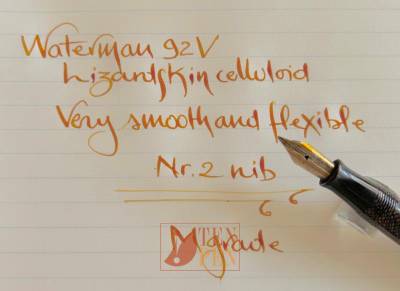 Waterman 92V
Lizardskin celluloid
Very smooth and flexible
Nr. 2 nib
M grade